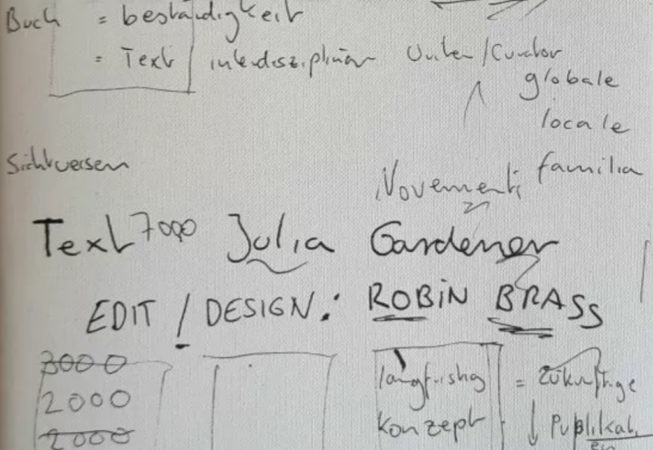 Buch = beständigkeit
= Text interdisziplinär Writer/Curator
globale
locale
familia
Sichtweisen
Novementi
Text 7000 Julia Gardener
EDIT / DESIGN: ROBIN BRASS
3000
2000
2000
langfristig = Zukünftige
Konzept ↓ Publikat.
ein